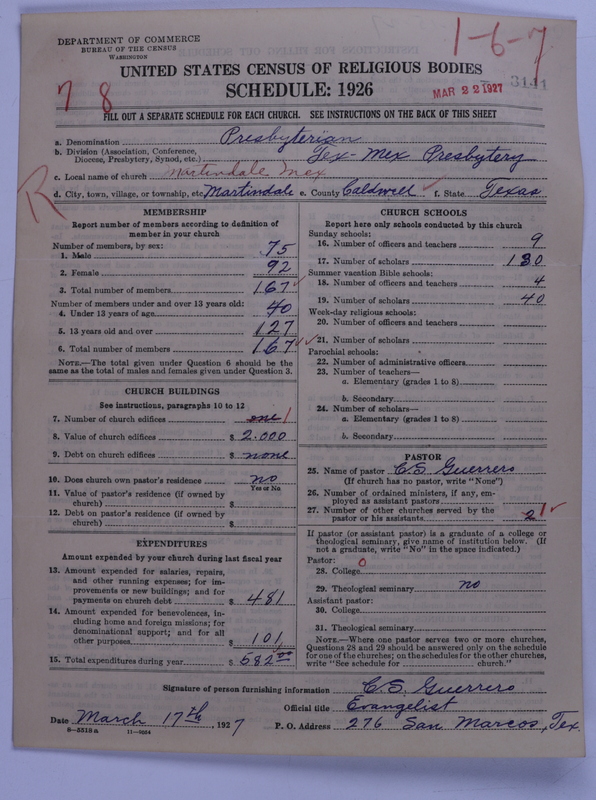 DEPARTMENT OF COMMERCE
BUREAU OF THE CENSUS
WASHINGTON
1-6-7
UNITED STATES CENSUS OF RELIGIOUS BODIES
SCHEDULE: 1926
7 8
MAR 22 1927
3141
FILL OUT A SEPARATE SCHEDULE FOR EACH CHURCH. SEE INSTRUCTIONS ON THE BACK OF THIS SHEET
a. Denomination Presbyterian
b. Division (Association, Conference, Diocese, Presbytery, Synod, etc.) Tex-Mex Presbytery
c. Local name of church Martindale Mex
R
d. City, town, village, or township, etc Martindale e. County Caldwell f. State Texas
MEMBERSHIP
Report number of members according to definition of
member in your church
Number of members, by sex:
1. Male 75
2. Female 92
3. Total number of members 167
Number of members under and over 13 years old:
4. Under 13 years of age 40
5. 13 years old and over 127
6. Total number of members 167
NOTE.—The total given under Question 6 should be the
same as the total of males and females given under Question 3.
CHURCH BUILDINGS
See instructions, paragraphs 10 to 12
7. Number of church edifices one 1
8. Value of church edifices $ 2.000
9. Debt on church edifices $ none
10. Does church own pastor's residence no
Yes or No
11. Value of pastor's residence (if owned by
church) $
12. Debt on pastor's residence (if owned by
church) $
EXPENDITURES
Amount expended by your church during last fiscal year
13. Amount expended for salaries, repairs,
and other running expenses; for im-
provements or new buildings; and for
payments on church debt $ 481
14. Amount expended for benevolences, in-
cluding home and foreign missions; for
denominational support; and for all
other purposes $ 101
15. Total expenditures during year $ 582 00
CHURCH SCHOOLS
Report here only schools conducted by this church
Sunday schools:
16. Number of officers and teachers 9
17. Number of scholars 130
Summer vacation Bible schools:
18. Number of officers and teachers 4
19. Number of scholars 40
Week-day religious schools:
20. Number of officers and teachers
21. Number of scholars
Parochial schools:
22. Number of administrative officers
23. Number of teachers—
a. Elementary (grades 1 to 8)
b. Secondary
24. Number of scholars—
a. Elementary (grades 1 to 8)
b. Secondary
PASTOR
25. Name of pastor C.S. Guerrero
(If church has no pastor, write "None")
26. Number of ordained ministers, if any, em-
ployed as assistant pastors
27. Number of other churches served by the
pastor or his assistants 2 1
If pastor (or assistant pastor) is a graduate of a college or
theological seminary, give name of institution below. (If
not a graduate, write "No" in the space indicated.)
Pastor: 0
28. College
29. Theological seminary no
Assistant pastor:
30. College
31. Theological seminary
NOTE.—Where one pastor serves two or more churches,
Questions 28 and 29 should be answered only on the schedule
for one of the churches; on the schedules for the other churches,
write "See schedule for church."
Signature of person furnishing information C. S. Guerrero
Official title Evangelist
Date March 17th, 1927 P. O. Address 276 San Marcos, Tex.
8-5518a 11-9054